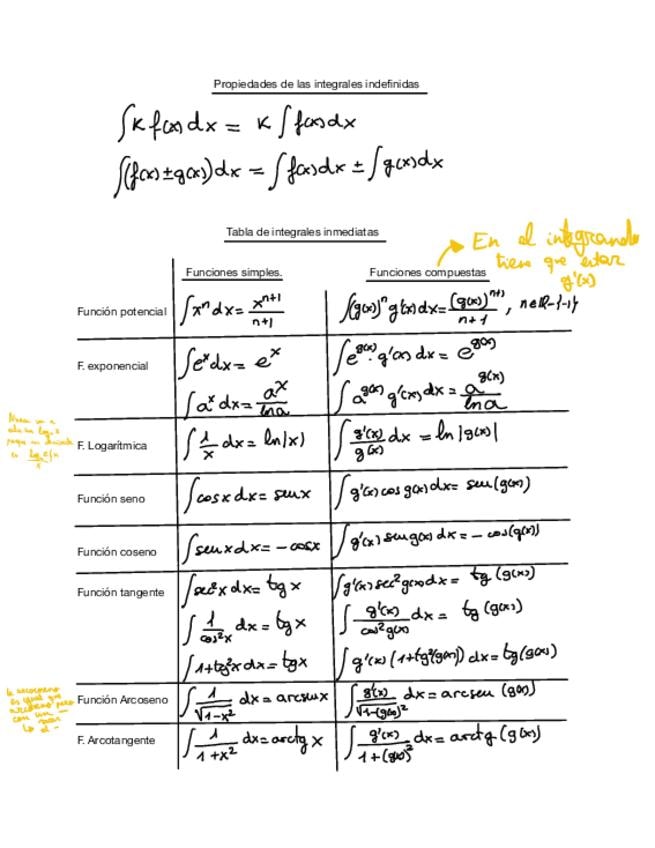 Propiedades de las integrales indefinidas
∫K f(x) dx = K ∫f(x) dx
∫(f(x) ± g(x)) dx = ∫f(x) dx ± ∫g(x) dx
Tabla de integrales inmediatas
En el integrando
tiene que estar
g'(x)
Funciones simples. Funciones compuestas
Función potencial ∫xⁿ dx = xⁿ⁺¹/n+1 ∫(g(x))ⁿ g'(x) dx = (g(x))ⁿ⁺¹/n+1 , n∈ℝ-{-1}
F. exponencial ∫eˣ dx = eˣ ∫e^g(x) · g'(x) dx = e^g(x)
∫aˣ dx = aˣ/ln a ∫a^g(x) g'(x) dx = a^g(x)/ln a
F. Logarítmica ∫1/x dx = ln|x) ∫g'(x)/g(x) dx = ln |g(x)|
Función seno ∫cos x dx = sen x ∫g'(x) cos g(x) dx = sen (g(x))
Función coseno ∫sen x dx = - cos x ∫g'(x) sen g(x) dx = - cos (g(x))
Función tangente ∫sec²x dx = tg x ∫g'(x) sec² g(x) dx = tg (g(x))
∫1/cos²x dx = tg x ∫g'(x)/cos² g(x) dx = tg (g(x))
∫1+tg²x dx = tgx ∫g'(x) (1+tg²(g(x))) dx = tg(g(x))
Función Arcoseno ∫1/√1-x² dx = arcsen x ∫g'(x)/√1-(g(x))² dx = arcsen (g(x))
es igual que
con un -
F. Arcotangente ∫1/1+x² dx = arctg x ∫g'(x)/1+(g(x))² dx = arctg (g(x))